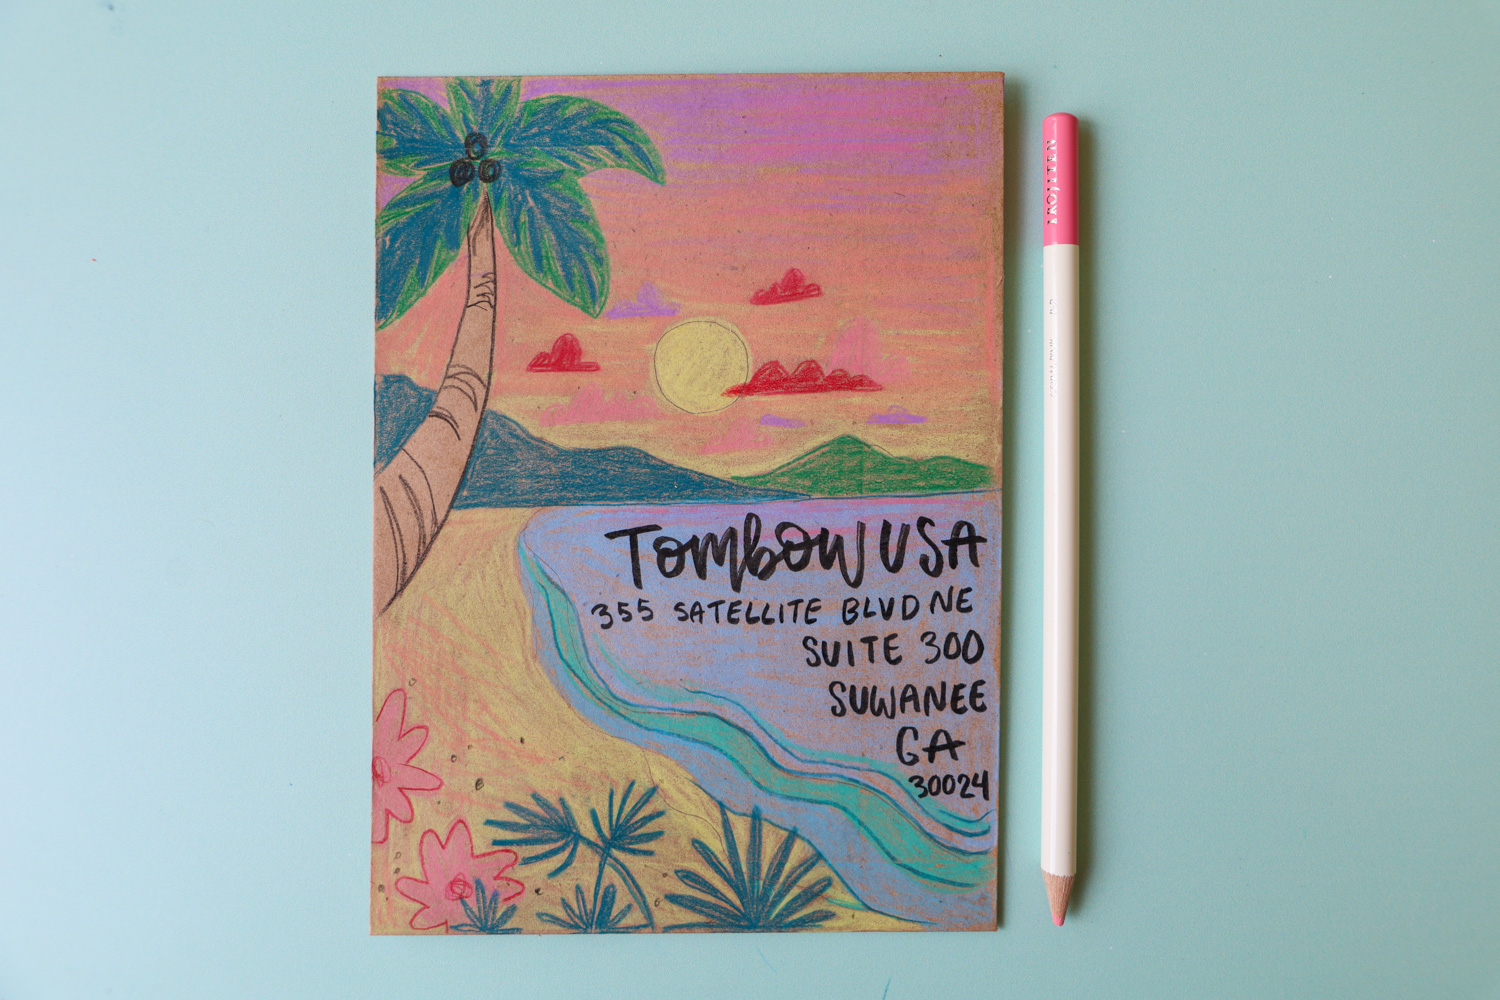 TOMBOW USA
355 SATELLITE BLVD NE
SUITE 300
SUWANEE
GA
30024
IROJITEN